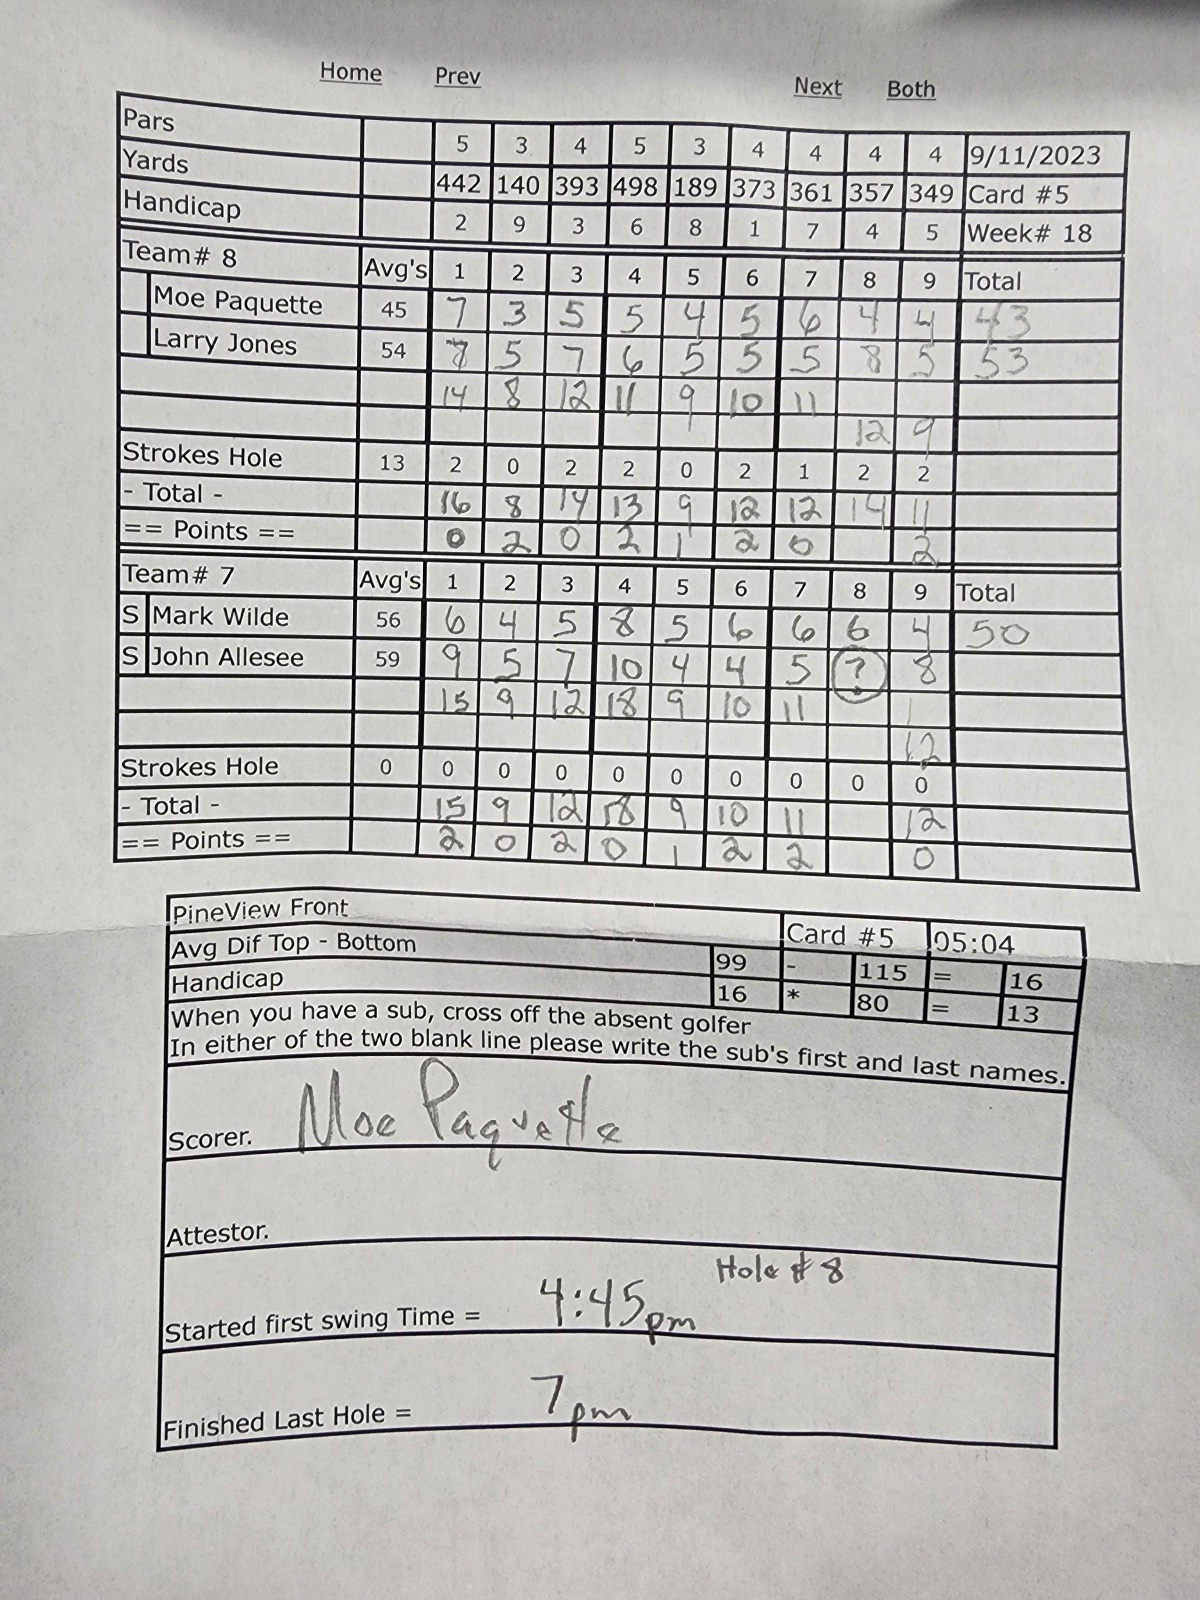 Home Prev Next Both
Pars 5 3 4 5 3 4 4 4 4 9/11/2023
Yards 442 140 393 498 189 373 361 357 349 Card #5
Handicap 2 9 3 6 8 1 7 4 5 Week# 18
Team# 8 Avg's 1 2 3 4 5 6 7 8 9 Total
Moe Paquette 45 7 3 5 5 4 5 6 4 4 43
Larry Jones 54 5 7 6 5 5 5 8 5 53
14 8 12 11 9 10 11
12 9
Strokes Hole 13 2 0 2 2 0 2 1 2 2
- Total - 16 8 14 13 9 12 12 14 11
== Points == 0 2 0 2 1 2 0 2
Team# 7 Avg's 1 2 3 4 5 6 7 8 9 Total
S Mark Wilde 56 6 4 5 8 5 6 6 6 4 50
S John Allesee 59 9 5 7 10 4 4 5 ? 8
15 9 12 18 9 10 11
12
Strokes Hole 0 0 0 0 0 0 0 0 0 0
- Total - 15 9 12 18 9 10 11 12
== Points == 2 0 2 0 1 2 2 0
PineView Front Card #5 05:04
Avg Dif Top - Bottom 99 - 115 = 16
Handicap 16 * 80 = 13
When you have a sub, cross off the absent golfer
In either of the two blank line please write the sub's first and last names.
Scorer. Moe Paquette
Attestor.
Hole # 8
Started first swing Time = 4:45pm
Finished Last Hole = 7pm